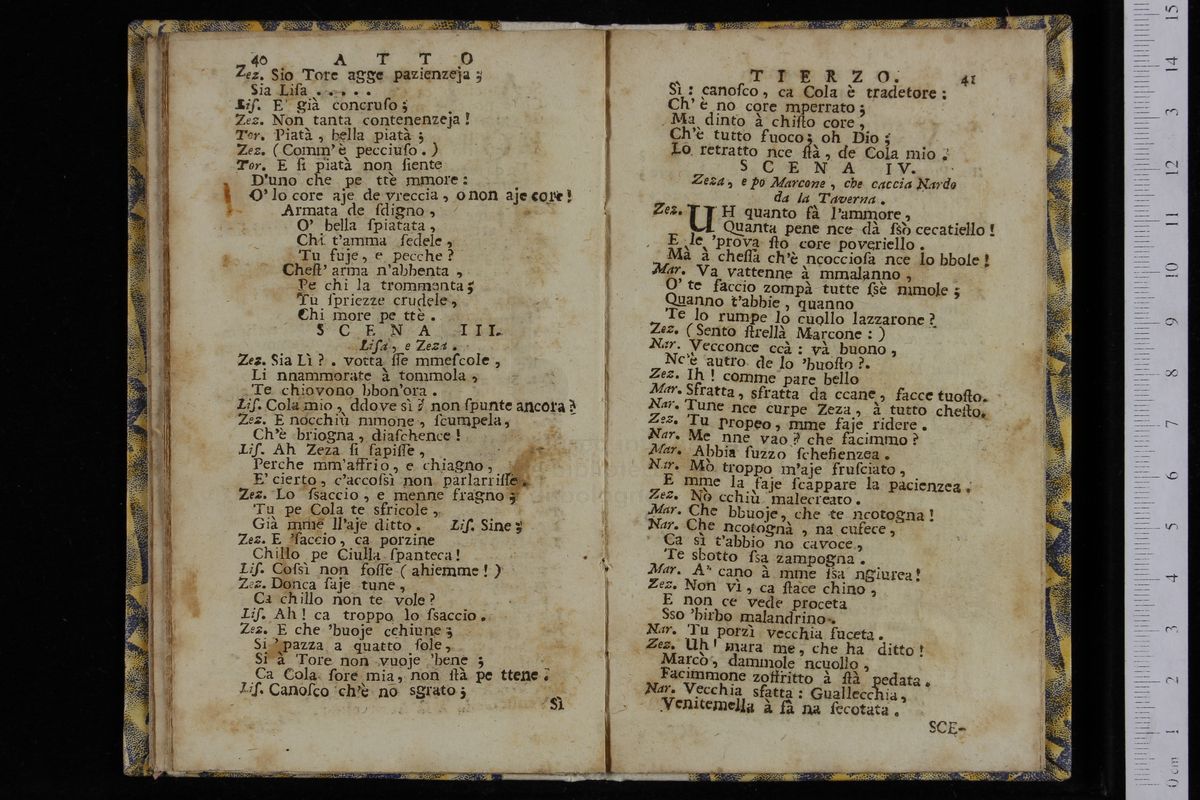 40 ATTO
Zez. Sio Tore agge pazienzeja;
Sia Liſa . . . . .
Liſ. E' già concruſo;
Zez. Non tanta contenenzeja!
Tor. Piatà, bella piatà;
Zez. (Comm'è pecciuſo.)
Tor. E ſi piatà non ſiente
D'uno che pe ttè mmore:
O' lo core aje de vreccia, o non aje core!
Armata de ſdigno,
O' bella ſpiatata,
Chi t'amma fedele,
Tu fuje, e pecche?
Cheſt' arma n'abbenta,
Pe chi la trommenta;
Tu ſpriezze crudele,
Chi more pe ttè.
SCENA III.
Liſa, e Zeza.
Zez. Sia Lì?. votta ſſe mmeſcole,
Li nnammorate à tommola,
Te chiovono bbon'ora.
Liſ. Cola mio, ddove sì? non ſpunte ancora?
Zez. E nocchiù mmone, ſcumpela,
Ch'è briogna, diaſchence!
Liſ. Ah Zeza ſi ſapiſſe,
Perche mm'affrio, e chiagno,
E' cierto, c'accoſsì non parlarriſſe.
Zez. Lo ſsaccio, e menne fragno;
Tu pe Cola te sfricole,
Già mme ll'aje ditto. Liſ. Sine;
Zez. E 'ſaccio, ca porzine
Chillo pe Ciulla ſpanteca!
Liſ. Coſsì non foſſe (ahiemme!)
Zez. Donca ſaje tune,
Ca chillo non te vole?
Liſ. Ah! ca troppo lo ſsaccio.
Zez. E che 'buoje cchiune;
Si 'pazza a quatto ſole,
Si à Tore non vuoje 'bene;
Ca Cola ſore mia, non ſtà pe ttene.
Liſ. Canoſco ch'è no sgrato;
Sì
TIERZO. 41
Sì: canoſco, ca Cola è tradetore:
Ch' è no core mperrato;
Ma dinto à chiſto core,
Ch'è tutto fuoco; oh Dio;
Lo retratto nce ſtà, de Cola mio.
SCENA IV.
Zeza, e po Marcone, che caccia Nardo
da la Taverna.
Zez. UH quanto fà l'ammore,
Quanta pene nce dà ſsò cecatiello!
E le 'prova ſto core poveriello.
Mà à cheſſa ch'è ncoccioſa nce lo bbole!
Mar. Va vattenne à mmalanno,
O' te faccio zompà tutte ſsè mmole;
Quanno t'abbie, quanno
Te lo rumpe lo cuollo lazzarone?
Zez. (Sento ſtrellà Marcone:)
Nar. Vecconce ccà: và buono,
Nc'è autro de lo 'buoſto?.
Zez. Ih! comme pare bello
Mar. Sfratta, sfratta da ccane, facce tuoſto.
Nar. Tune nce curpe Zeza, à tutto cheſto.
Zez. Tu propeo, mme faje ridere.
Nar. Me nne vao? che facimmo?
Mar. Abbia fuzzo ſchefienzea.
Nar. Mò troppo m'aje fruſciato,
E mme la faje ſcappare la pacienzea.
Zez. Nò cchiù malecreato.
Mar. Che bbuoje, che te ncotogna!
Nar. Che ncotognà, na cufece,
Ca sì t'abbio no cavoce,
Te sbotto ſsa zampogna.
Mar. A' cano à mme ſsa ngiurea!
Zez. Non vì, ca ſtace chino,
E non ce vede proceta
Sso 'birbo malandrino.
Nar. Tu porzì vecchia fuceta.
Zez. Uh! mara me, che ha ditto!
Marcò, dammole ncuollo,
Facimmone zoffritto à ſtà pedata.
Nar. Vecchia sfatta: Guallecchia,
Venitemella à fà na ſecotata.
SCE-